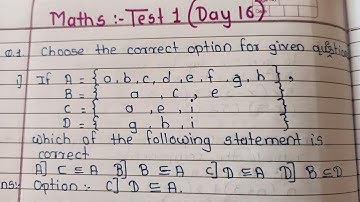 Maths :- Test 1 (Day 16)
Q.1. Choose the correct option for given question
1] If A = { a, b, c, d, e, f, g, h },
B = { a, c, e }
C = { a, e, i }
D = { g, h, i }
which of the following statement is
correct
A] C ⊆ A B] B ⊆ A C] D ⊆ A D] B ⊆ D
Ans:- Option :- C] D ⊆ A.